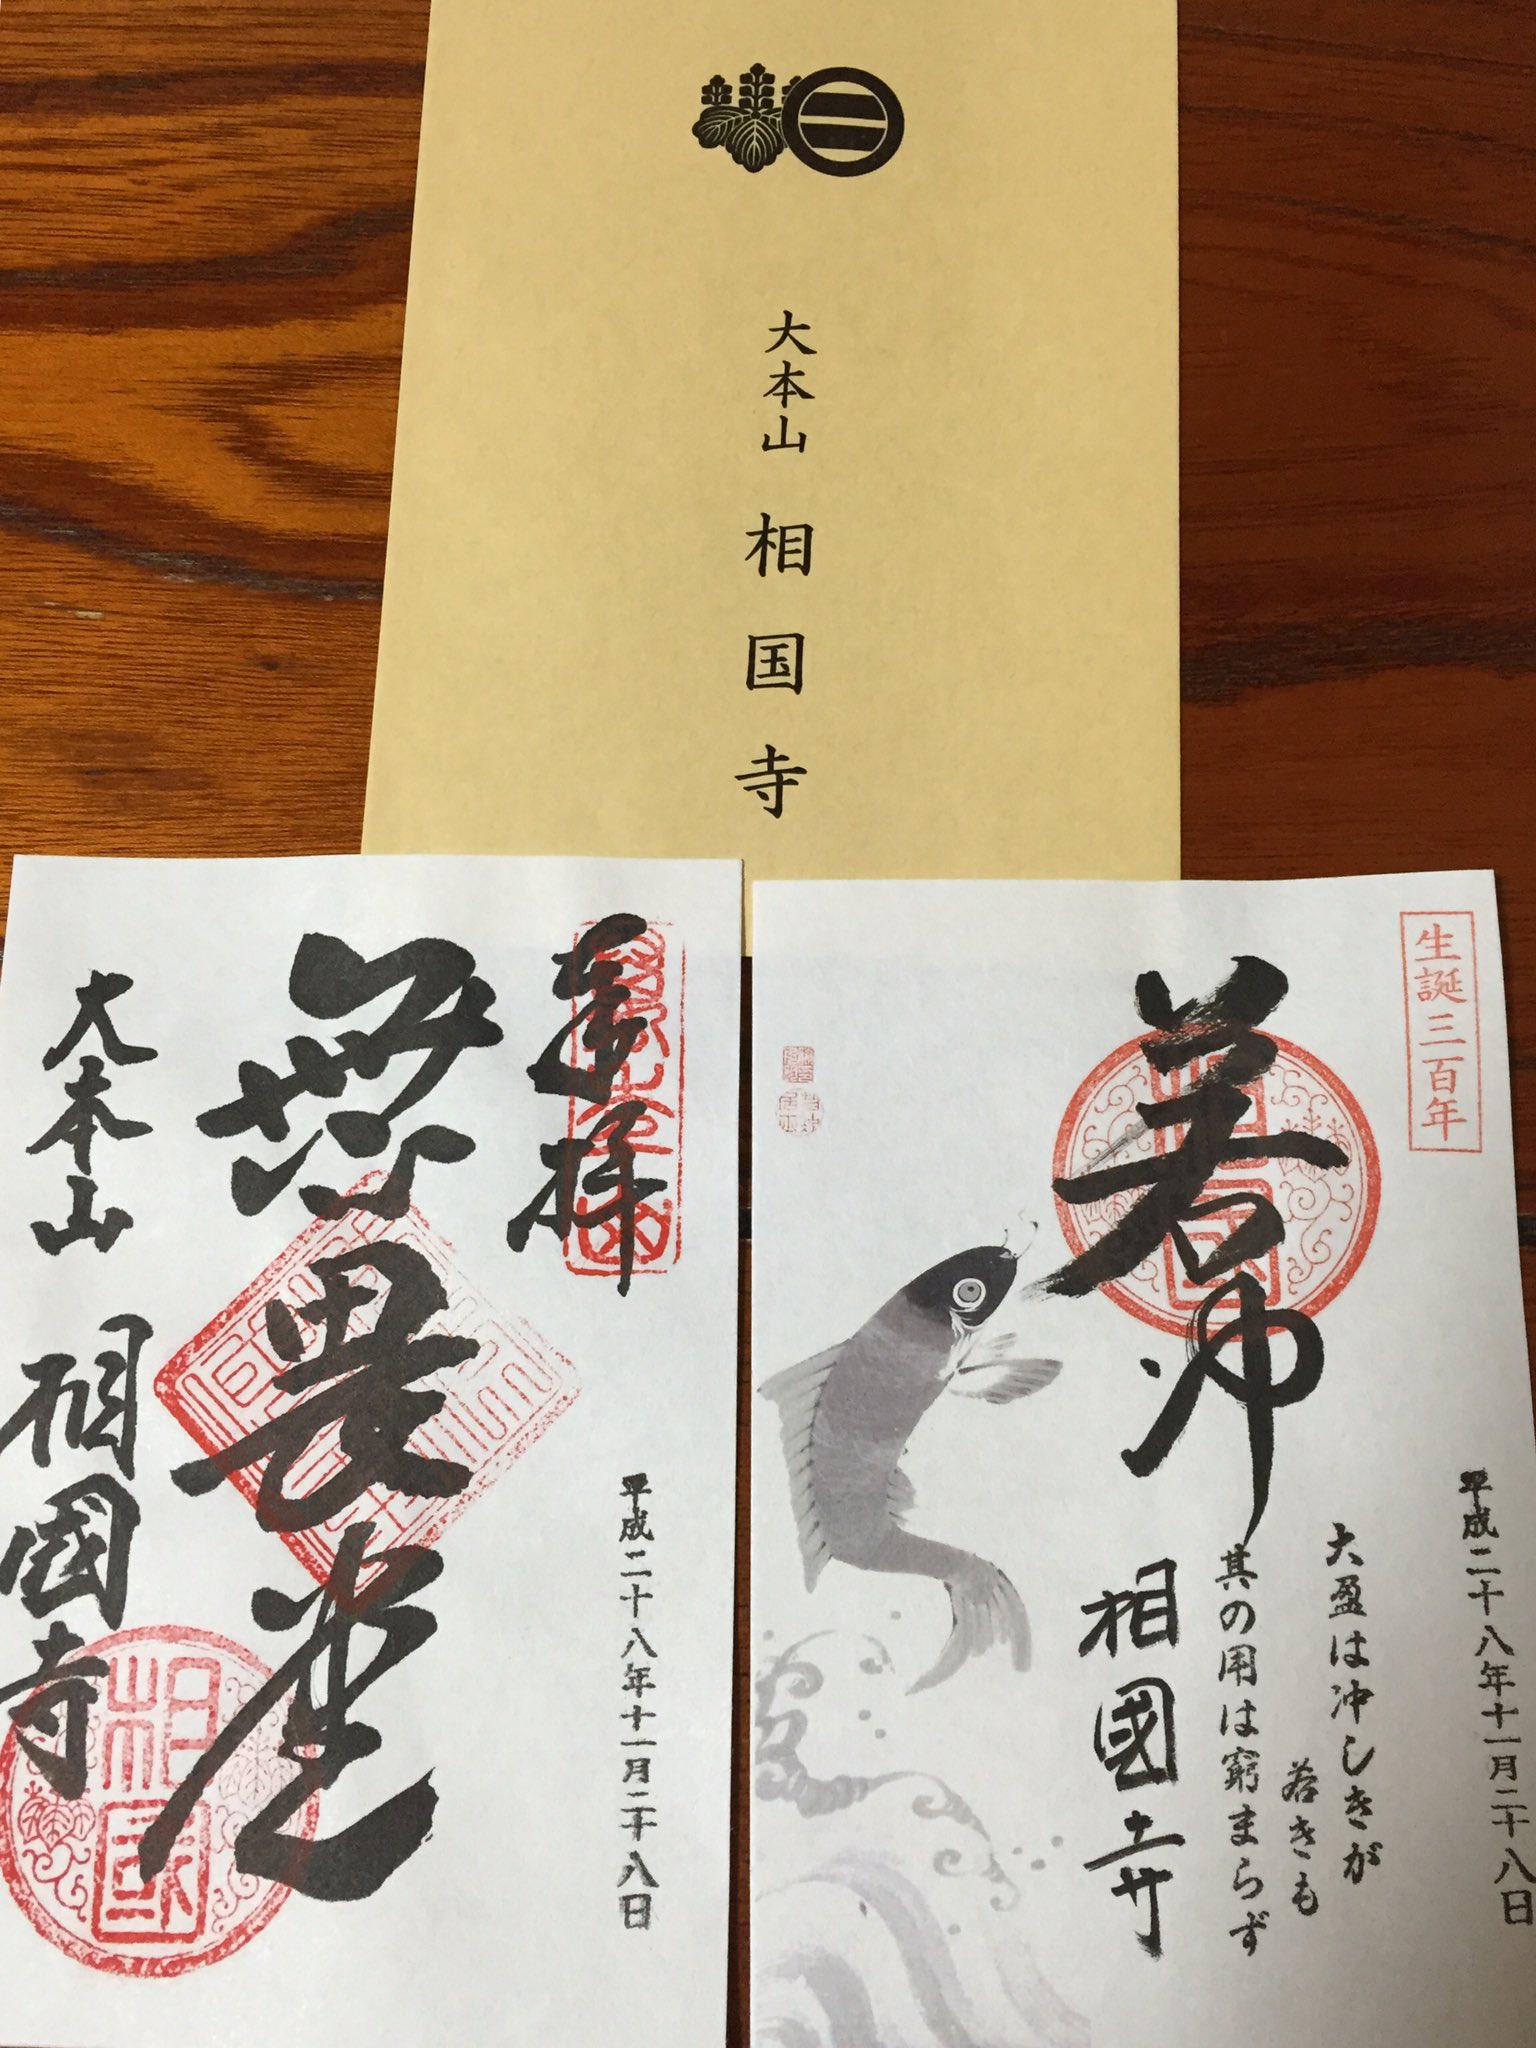 大本山 相国寺
奉拝
平成二十八年十一月二十八日
無畏堂
大本山 相國寺
相国
生誕三百年
平成二十八年十一月二十八日
若冲
相国
大盈は冲しきが
若きも
其の用は窮まらず
相國寺